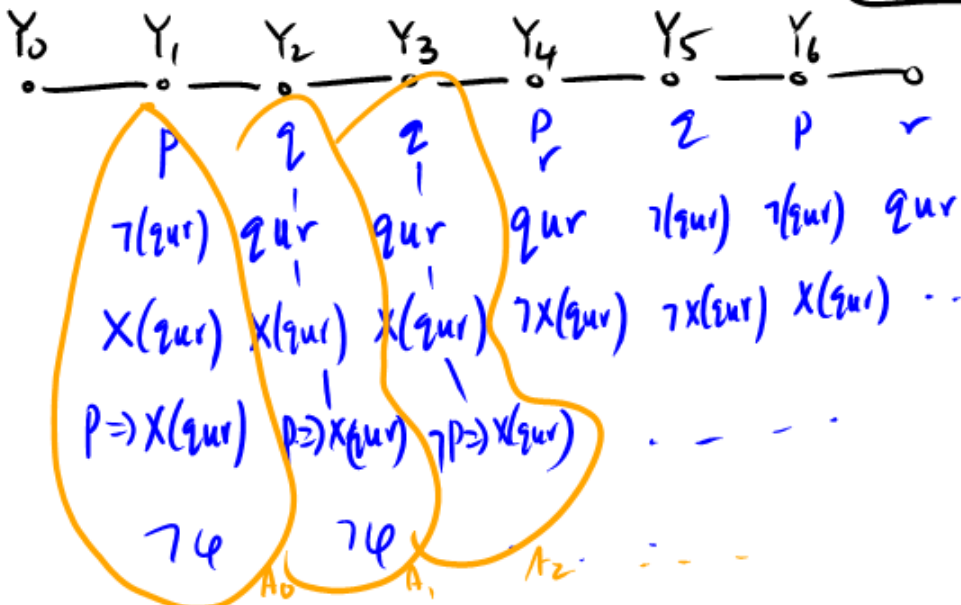 Y₀ Y₁ Y₂ Y₃ Y₄ Y₅ Y₆
p q q p q p r
r
¬(qur) qur qur qur ¬(qur) ¬(qur) qur
X(qur) X(qur) X(qur) ¬X(qur) ¬X(qur) X(qur) ..
p=>X(qur) p=>X(qur) ¬p=>X(qur) . - - .
¬φ ¬φ
A₀ A₁ A₂